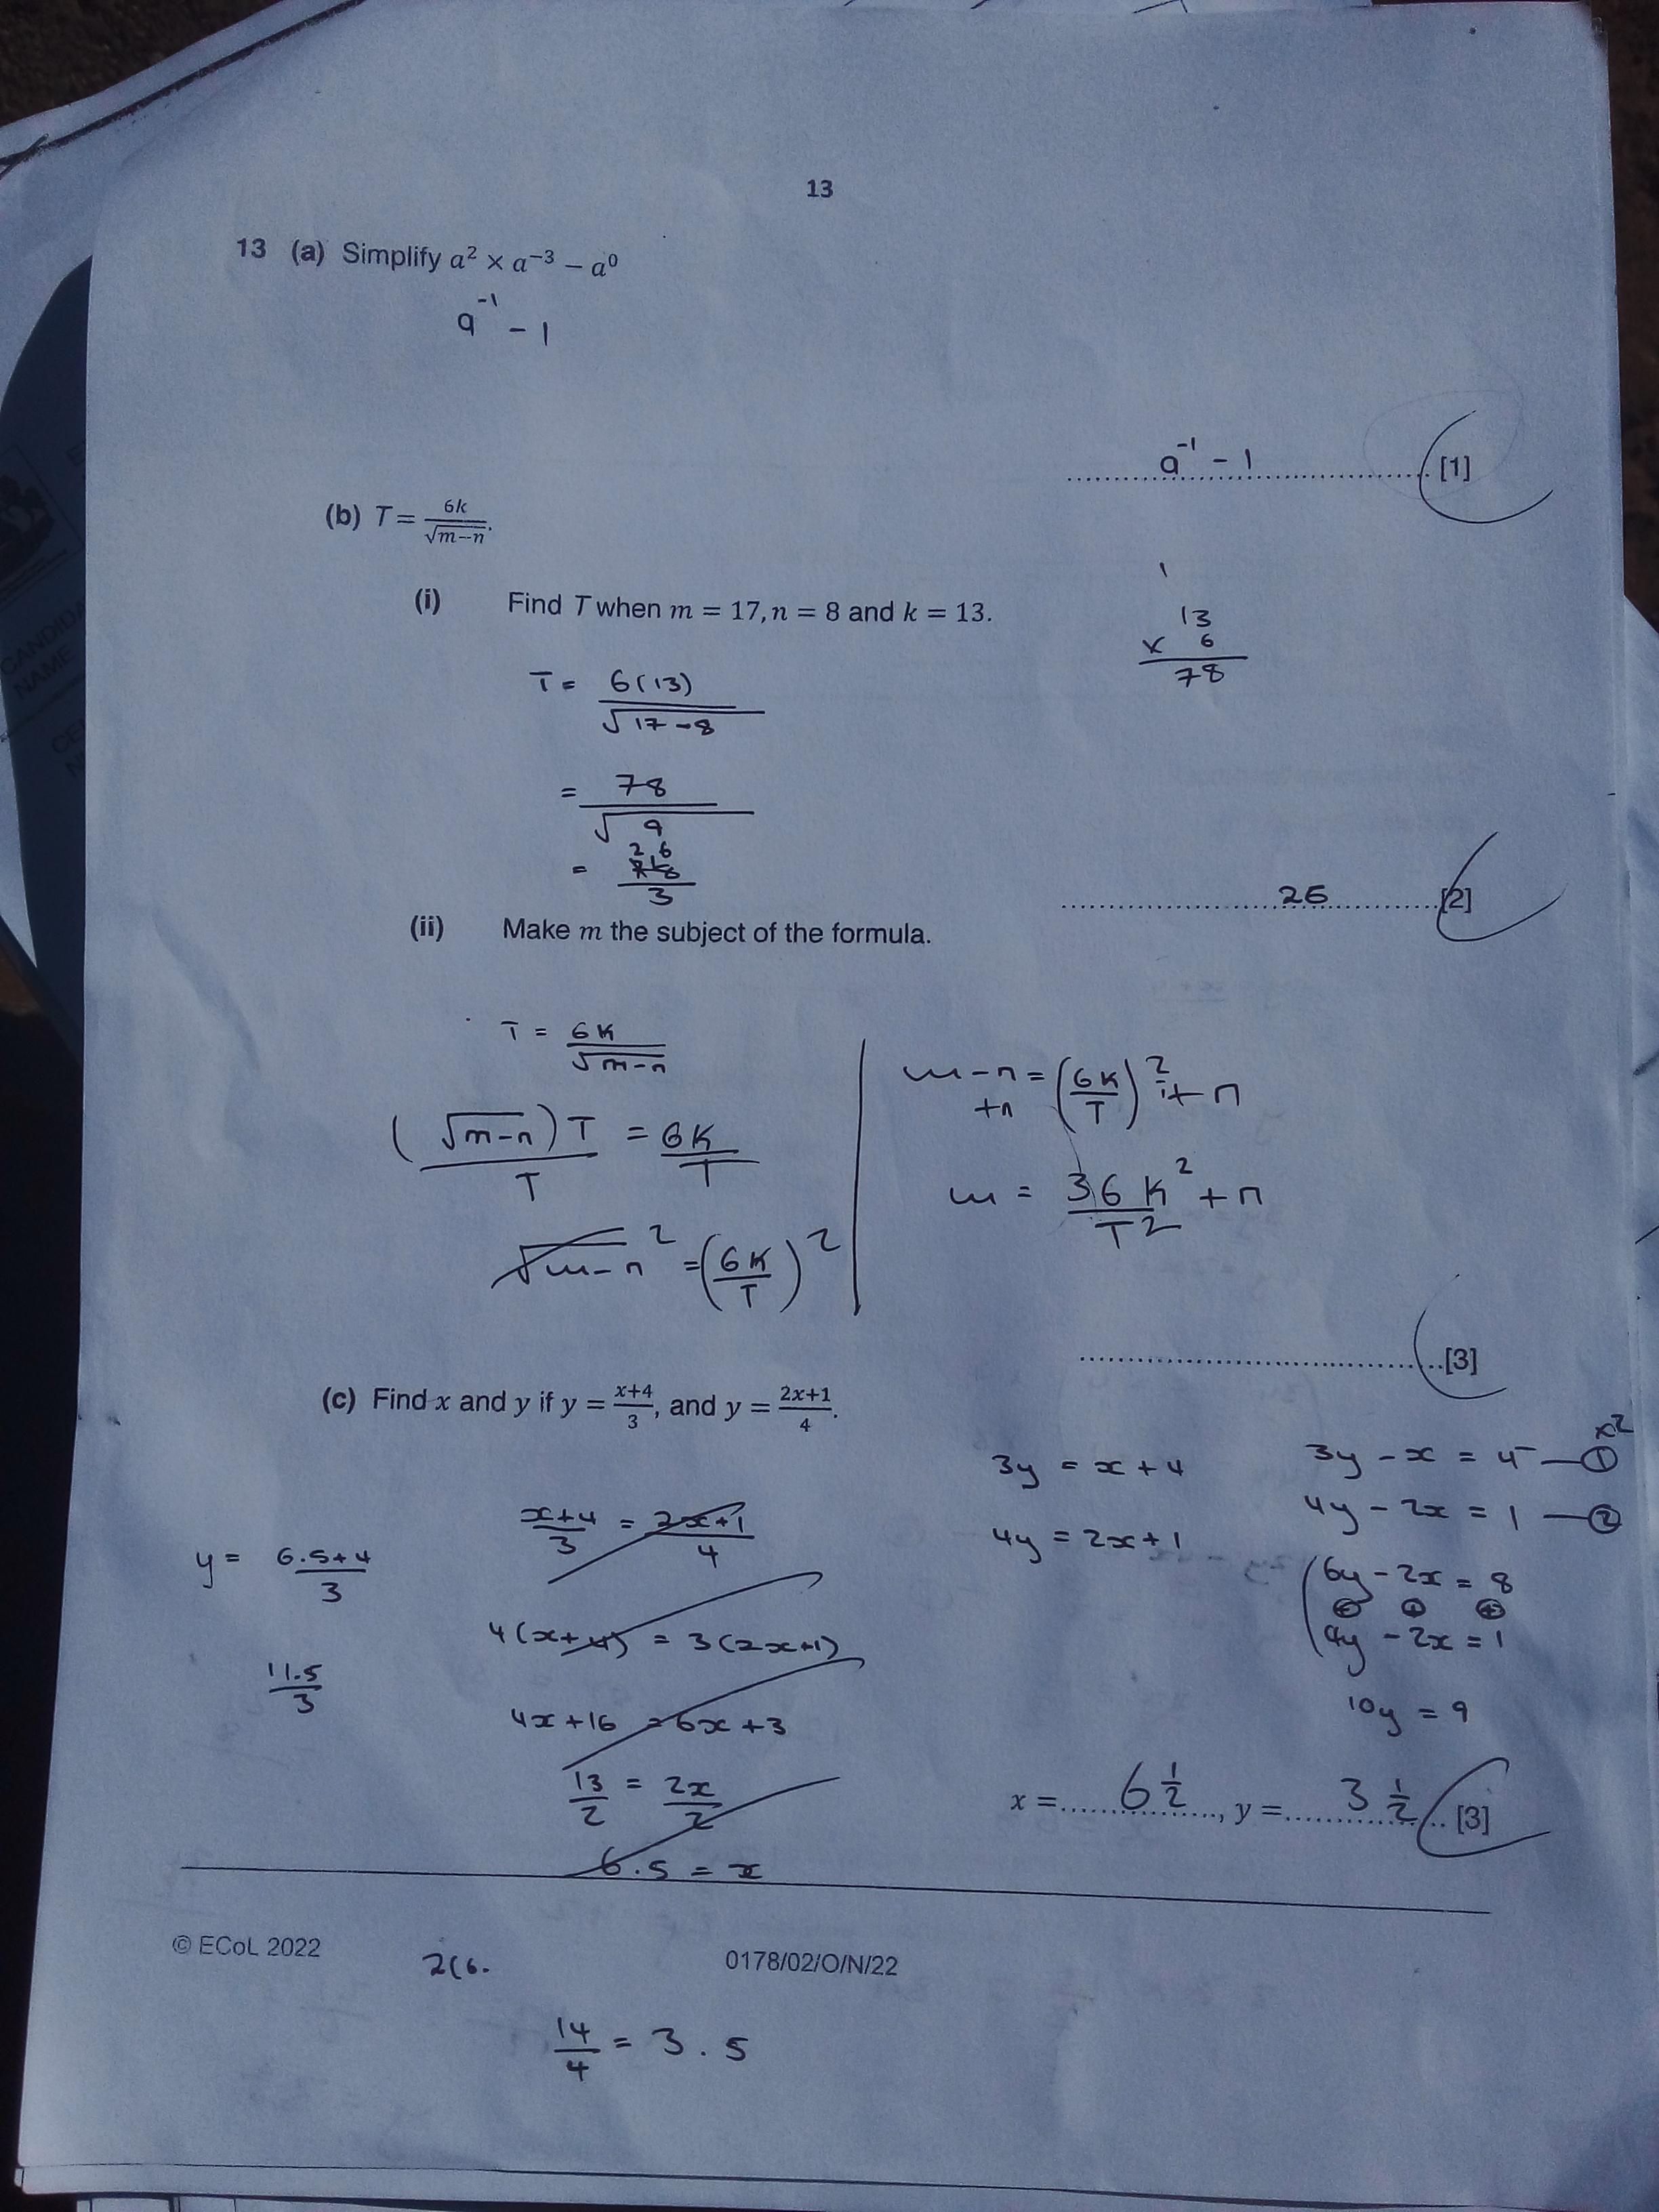 13
13 (a) Simplify a² × a⁻³ − a⁰
a⁻¹ − 1
a⁻¹ − 1 [1]
(b) T = 6k/√(m−n).
(i) Find T when m = 17, n = 8 and k = 13.
1
13
× 6
78
T = 6(13)/√(17−8)
= 78/√9
2 6
= 78/3
26 [2]
(ii) Make m the subject of the formula.
T = 6K/√(m−n)
(√(m−n))T/T = 6K/T
√(m−n)² = (6K/T)²
m−n = (6K/T)² + n
+n
m = 36K²/T² + n
[3]
(c) Find x and y if y = (x+4)/3, and y = (2x+1)/4.
(x+4)/3 = (2x+1)/4
4(x+4) = 3(2x+1)
4x+16 = 6x+3
13/2 = 2x/2
6.5 = x
y = (6.5+4)/3
11.5/3
3y = x+4
4y = 2x+1
x2
3y − x = 4 — ①
4y − 2x = 1 — ②
6y − 2x = 8
4y − 2x = 1
10y = 9
x = 6 1/2, y = 3 1/2 [3]
© ECoL 2022 0178/02/O/N/22
2(6.
14/4 = 3.5